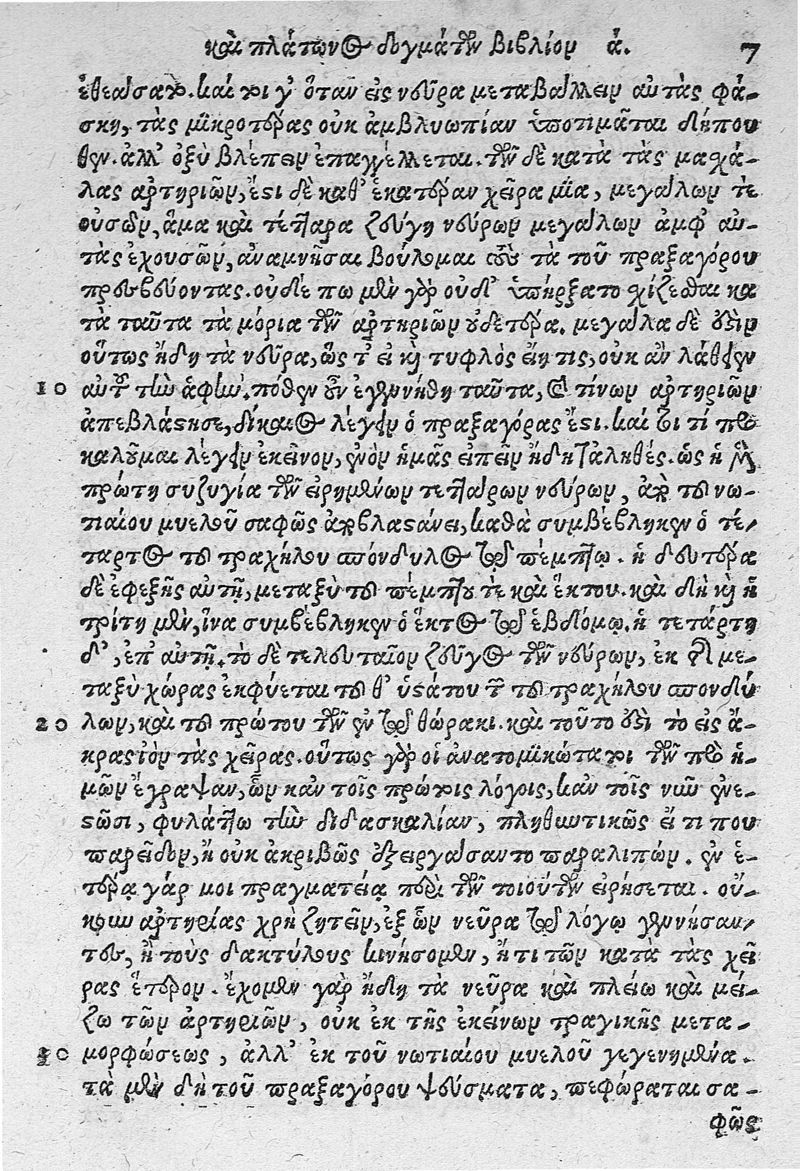 καὶ πλάτωνος δογμάτων βιβλίον ά. 7
ἐθεάσατο. καί τοι γ’ ὅταν εἰς νεῦρα μεταβάλλειν αὐτὰς φά-
σκῃ, τὰς μικροτέρας οὐκ ἀμβλυωπίαν ὑποτιμᾶται δήπου
θεν. ἀλλ’ ὀξὺ βλέπειν ἐπαγγέλλεται. τῶν δὲ κατὰ τὰς μασχά-
λας ἀρτηριῶν, ἔστι δὲ καθ’ ἑκατέραν χεῖρα μία, μεγάλων τε
οὐσῶν, ἅμα καὶ τέτταρα ζεύγη νεύρων μεγάλων ἀμφ’ αὐ-
τὰς ἐχουσῶν, ἀναμνῆσαι βούλομαι τοὺς τὰ τοῦ πραξαγόρου
πρεσβεύοντας. οὐδέ πω μὲν γὰρ οὐδ’ ὑπήρξατο σχίζεσθαι κα
τὰ ταῦτα τὰ μόρια τῶν ἀρτηριῶν οὐδετέρα. μεγάλα δὲ ἐστὶν
οὕτως ἤδη τὰ νεῦρα, ὥς τ’ εἰ καὶ τυφλὸς εἴη τις, οὐκ ἂν λάθοιεν
10 αὐτοῦ τὴν ἁφήν. πόθεν οὖν ἐγεννήθη ταῦτα, καὶ τίνων ἀρτηριῶν
ἀπεβλάστησε, δίκαιος λέγειν ὁ πραξαγόρας ἔστι. καί τοι τί πρὸς
καλοῦμαι λέγειν ἐκεῖνον, ἐνὸν ἡμᾶς εἰπεῖν ἤδη τἀληθές. ὡς ἡ μὲν
πρώτη συζυγία τῶν εἰρημένων τεττάρων νεύρων, ἀπὸ τοῦ νω-
τιαίου μυελοῦ σαφῶς ἀποβλαστάνει, καθὰ συμβέβληκεν ὁ τέ-
ταρτος τοῦ τραχήλου σπόνδυλος τῷ πέμπτῳ. ἡ δευτέρα
δὲ ἐφεξῆς αὐτῇ, μεταξὺ τοῦ πέμπτου τὲ καὶ ἕκτου. καὶ δὴ καὶ ἡ
τρίτη μὲν, ἵνα συμβέβληκεν ὁ ἕκτος τῷ ἑβδόμῳ. ἡ τετάρτη
δ’, ἐπ’ αὐτῇ. τὸ δὲ τελευταῖον ζεῦγος τῶν νεύρων, ἐκ τῆς με-
ταξὺ χώρας ἐκφύεται τοῦ θ’ ὑστάτου τῶν τοῦ τραχήλου σπονδύ
20 λων, καὶ τοῦ πρώτου τῶν ἐν τῷ θώρακι. καὶ τοῦτο ἐστὶ τὸ εἰς ἄ-
κρας ἰὸν τὰς χεῖρας. οὕτως γὰρ οἱ ἀνατομικώτατοι τῶν πρὸ ἡ-
μῶν ἔγραψαν, ὧν κᾀν τοῖς πρώτοις λόγοις, κᾀν τοῖς νῦν ἐνε-
στῶσι, φυλάττω τὴν διδασκαλίαν, πληθυντικῶς εἴ τι που
παρεῖδον, ἢ οὐκ ἀκριβῶς ἐξειργάσαντο παραλιπών. ἐν ἑ-
τέρᾳ γάρ μοι πραγματείᾳ περὶ τῶν τοιούτων εἰρήσεται. οὔ-
κουν ἀρτηρίας χρὴ ζητεῖν, ἐξ ὧν νεῦρα τῷ λόγῳ γεννήσαν-
τες, ἢ τοὺς δακτύλους κινήσομεν, ἤ τι τῶν κατὰ τὰς χεῖ
ρας ἕτερον. ἔχομεν γὰρ ἤδη τὰ νεῦρα καὶ πλείω καὶ μεί-
ζω τῶν ἀρτηριῶν, οὐκ ἐκ τῆς ἐκείνων τραγικῆς μετα-
30 μορφώσεως, ἀλλ’ ἐκ τοῦ νωτιαίου μυελοῦ γεγενημένα.
τὰ μὲν δὴ τοῦ πραξαγόρου ψεύσματα, πεφώραται σα-
φῶς